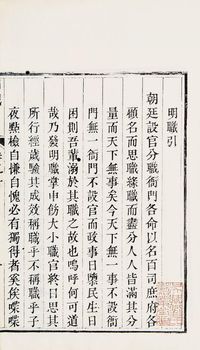 明職引
朝廷設官分職衙門各命以名百司庶府各
顧名而思職緣職而盡分人人皆滿其分
量而天下無事矣今天下無一事不設衙
門無一衙門不設官而政事日隳民生日
困則吾輩溺於其職之故也嗚呼何可道
哉乃發明職掌申飭大小職官終日思其
所行經歲驗其成效稱職乎不稱職乎子
夜點檢自謙自愧必有獨得者奚俟喋喋